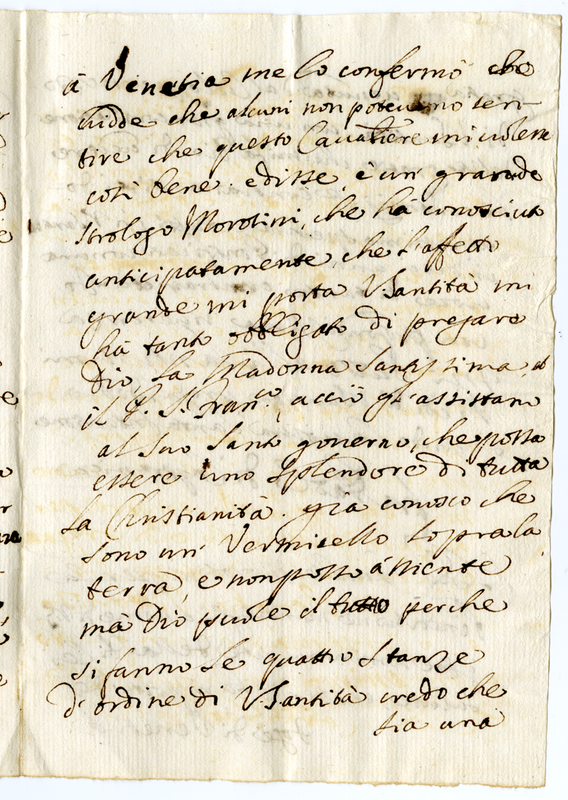 à Venetia me lo confermò che
vidde che alcuni non potevano sen-
tire che questo Cavaliere mi volesse
così bene. e disse, è un' grande
strologo Morosini, che hà conosciuto
anticipatamente, che l'affetto
grande mi porta V. Santità mi
hà tanto obbligato di pregare
Dio, la Madonna Santissima, et
il P. S. Fran.co, acciò gl'assistano
al suo santo governo, che possa
essere uno splendore di tutta
la Christianità. già conosco che
sono un' Vermicello sopra la
terra, e non posso à niente
mà Dio puole il tutto perche
si fanno le quattro stanze
d'ordine di V. Santità credo che
sia una